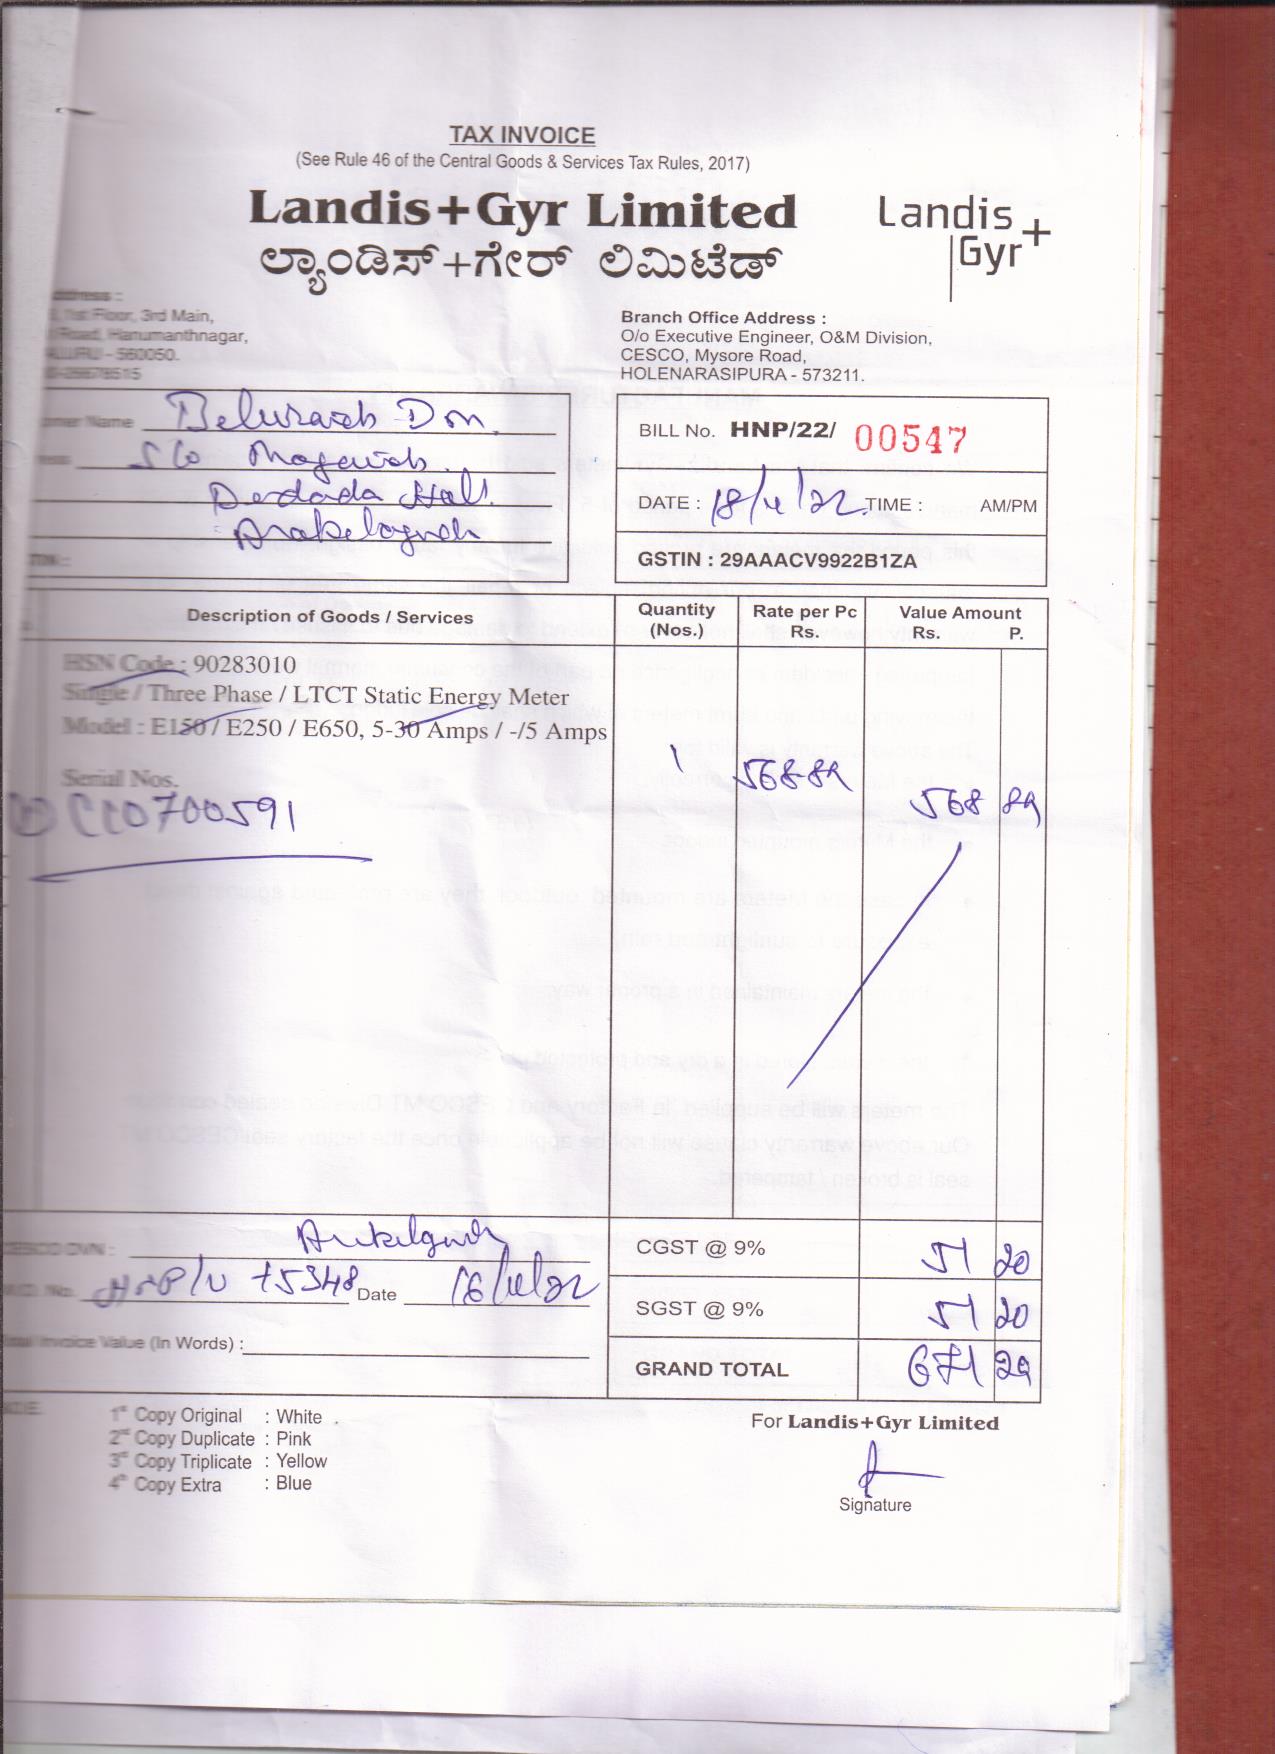 TAX INVOICE
(See Rule 46 of the Central Goods & Services Tax Rules, 2017)
Landis+Gyr Limited
ಲ್ಯಾಂಡಿಸ್+ಗೇರ್ ಲಿಮಿಟೆಡ್
Landis
Gyr+
ddress :
1st Floor, 3rd Main,
Road, Hanumanthnagar,
- 560050.
Branch Office Address :
O/o Executive Engineer, O&M Division,
CESCO, Mysore Road,
HOLENARASIPURA - 573211.
Name
S/o
BILL No. HNP/22/ 00547
DATE : 18/4/22 TIME : AM/PM
GSTIN : 29AAACV9922B1ZA
Description of Goods / Services Quantity (Nos.) Rate per Pc Rs. Value Amount Rs. P.
HSN Code : 90283010
Single / Three Phase / LTCT Static Energy Meter
Model : E150 / E250 / E650, 5-30 Amps / -/5 Amps
1 568-89 568 89
Serial Nos.
0700591
CGST @ 9% 51 20
Date 16/4/22
SGST @ 9% 51 20
Invoice Value (In Words) :
GRAND TOTAL 671 29
1st Copy Original : White
2nd Copy Duplicate : Pink
3rd Copy Triplicate : Yellow
4th Copy Extra : Blue
For Landis+Gyr Limited
Signature